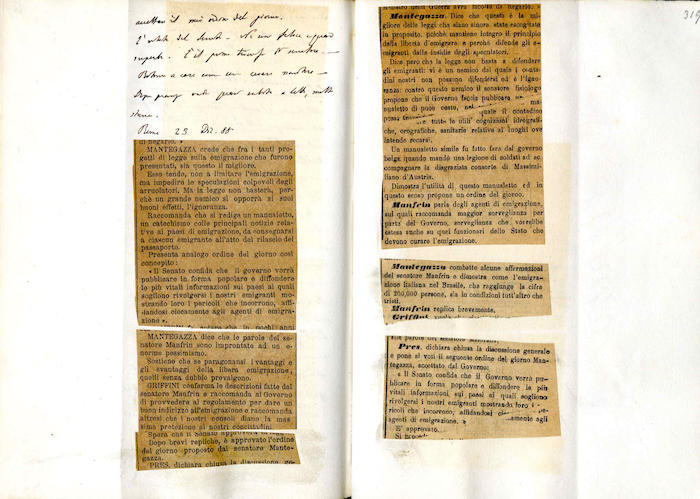 319
accettare il mio ordine del giorno.
E' votato dal Senato
Roma 23 Dic. 88
di negarlo.
MANTEGAZZA crede che fra i tanti pro-
getti di legge sulla emigrazione che furono
presentati, sia questo il migliore.
Esso tende, non a limitare l'emigrazione,
ma impedire le speculazioni colpevoli degli
arruolatori. Ma la legge non basterà, per-
chè un grande nemico si opporrà ai suoi
buoni effetti, l'ignoranza.
Raccomanda che si rediga un manualetto,
un catechismo colle principali notizie rela-
tive ai paesi di emigrazione, da consegnarsi
a ciascun emigrante all'atto del rilascio del
passaporto.
Presenta analogo ordine del giorno così
concepito:
« Il Senato confida che il governo vorrà
pubblicare in forma popolare e diffondere
le più vitali informazioni sui paesi ai quali
sogliono rivolgersi i nostri emigranti mo-
strando loro i pericoli che incorrono, affi-
dandosi ciecamente agli agenti di emigra-
zione ».
MANTEGAZZA dice che le parole del se-
natore Manfrin sono improntate ad un e-
norme pessimismo.
Sostiene che se paragonansi i vantaggi e
gli svantaggi della libera emigrazione,
quelli senza dubbio prevalgono.
GRIFFINI conferma le descrizioni fatte dal
senatore Manfrin e raccomanda al Governo
di provvedere al regolamento per dare un
buon indirizzo all'emigrazione e raccomanda
altresì che i nostri consoli diano la mas
sima protezione ai nostri concittadini.
Spera che il Senato approverà
Dopo brevi repliche, è approvato l'ordine
del giorno proposto dal senatore Mante-
gazza.
PRES. dichiara chiusa la discussione ge-
Mantegazza. Dice che questa è la mi-
gliore delle leggi che siano sinora state escogitate
in proposito, poichè mantiene integro il principio
della libertà d'emigrare e perchè difende gli e-
migranti dalle insidie degli speculatori.
Dice però che la legge non basta a difendere
gli emigranti: vi è un nemico dal quale i conta-
dini nostri non possono difendersi ed è l'igno-
ranza: contro questo nemico il senatore fisiologo
propone che il Governo faccia pubblicare un ma-
nualetto di poco costo, nel quale il contadino
possa tutte le utili cognizioni idrografi-
che, orografiche, sanitarie relative ai luoghi ove
intende recarsi.
Un manualetto simile fu fatto fare dal governo
belga quando mandò una legione di soldati ad ac-
compagnare la disgraziata consorte di Massimi-
liano d'Austria.
Dimostra l'utilità di questo manualetto ed in
questo senso propone un ordine del giorno.
Manfrin parla degli agenti di emigrazione,
sui quali raccomanda maggior sorveglianza per
parte del Governo, sorveglianza che vorrebbe
estesa anche su quei funzionari dello Stato che
devono curare l'emigrazione.
Mantegazza combatte alcune affermazioni
del senatore Manfrin e dimostra come l'emigra-
zione italiana nel Brasile, che raggiunge la cifra
di 200,000 persone, sia in condizioni tutt'altro che
tristi.
Manfrin replica brevemente.
Griffini
Pres. dichiara chiusa la discussione generale
e pone ai voti il seguente ordine del giorno Man-
tegazza, accettato dal Governo:
« Il Senato confida che il Governo vorrà pub-
blicare in forma popolare e diffondere le più
vitali informazioni, sui paesi ai quali sogliono
rivolgersi i nostri emigranti mostrando loro i
ricoli che incorrono, affidandosi
agenti di emigrazione. » amente agli
E' approvato.